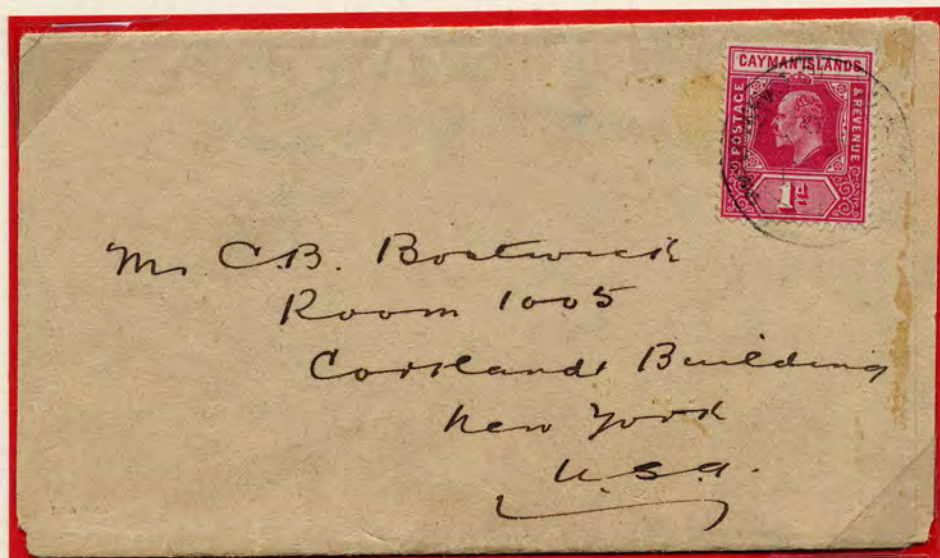 CAYMAN ISLANDS
POSTAGE
& REVENUE
1d
Mr C.B. Bostwick
Room 1005
Cortlandt Building
New York
U.S.A.